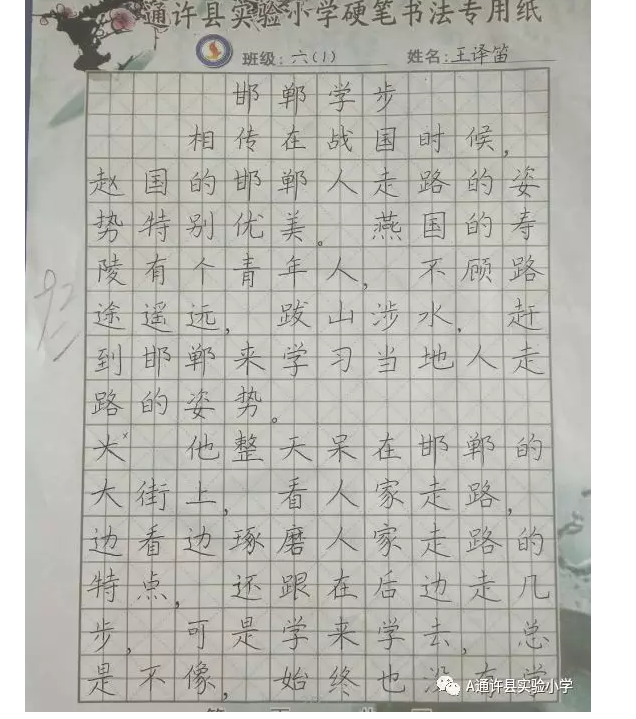 通许县实验小学硬笔书法专用纸
班级:六(1) 姓名:王译笛
邯郸学步
相传在战国时候,
赵国的邯郸人走路的姿
势特别优美。燕国的寿
陵有个青年人,不顾路
途遥远,跋山涉水,赶
到邯郸来学习当地人走
路的姿势。
大 他整天呆在邯郸的
大街上,看人家走路,
边看边琢磨人家走路的
特点,还跟在后边走几
步,可是学来学去,总
是不像,始终也没有学
A通许县实验小学